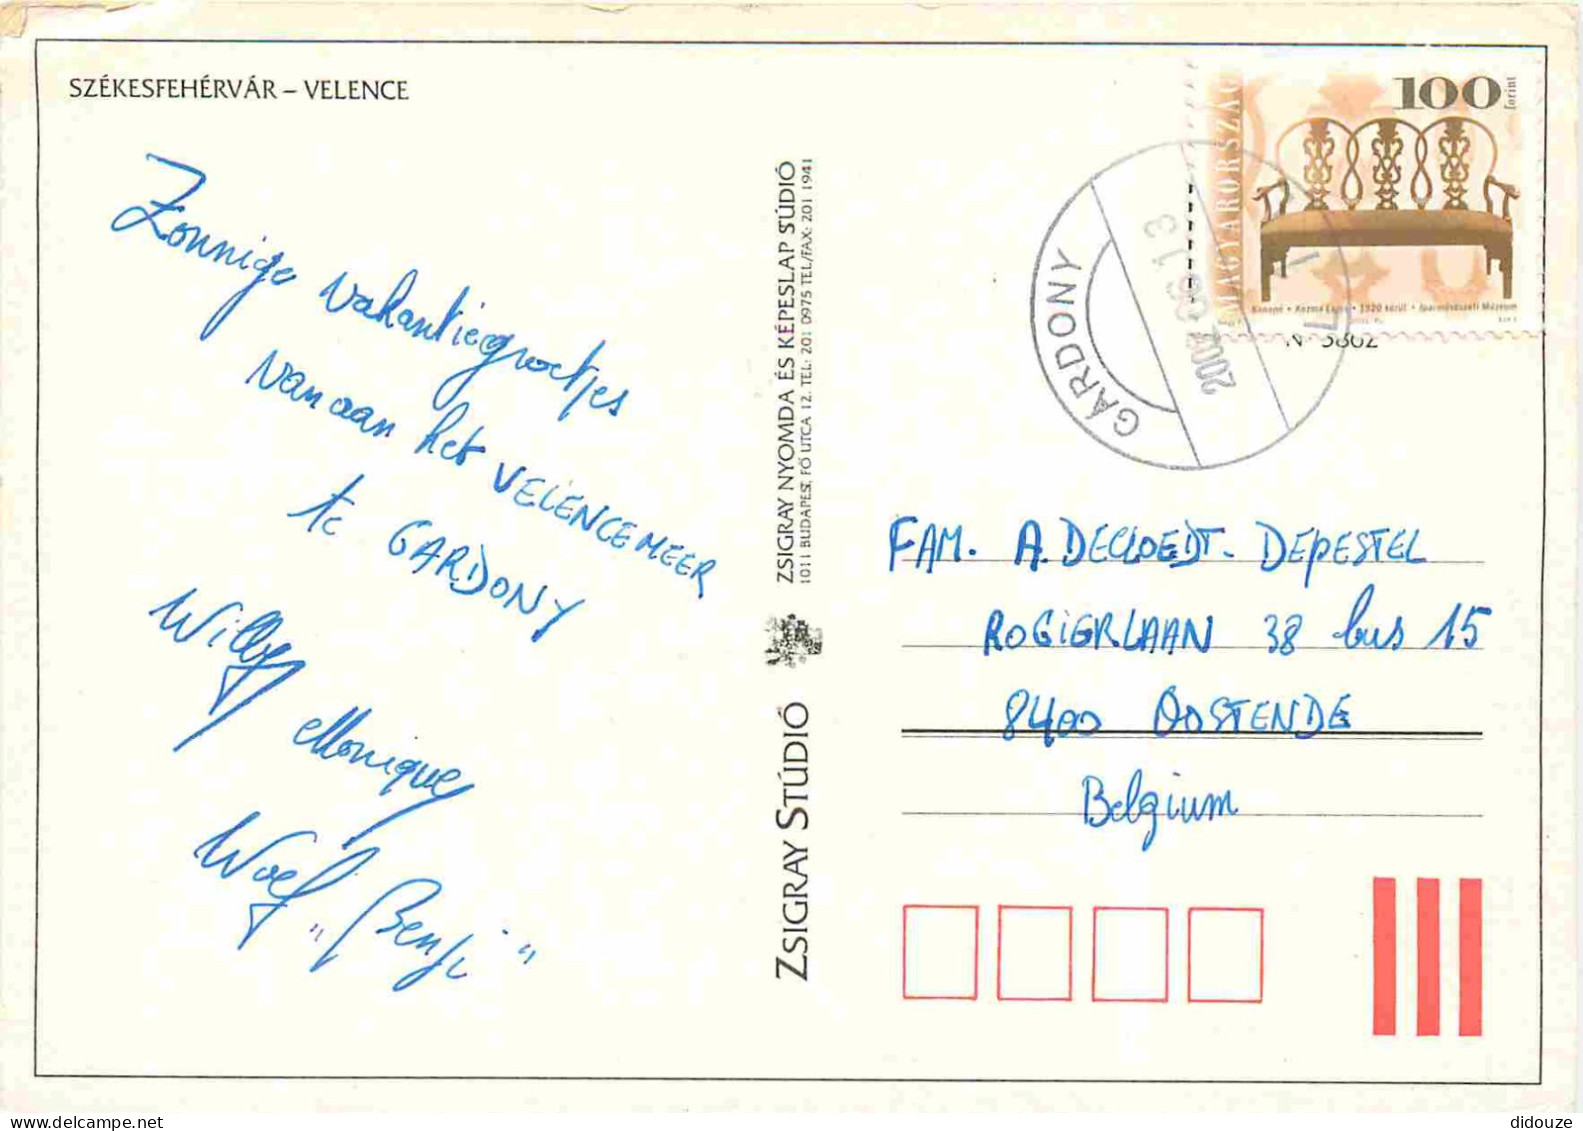 SZÉKESFEHÉRVÁR – VELENCE
Zonnige vakantiegroetjes
van aan het VELENCEMEER
te GARDONY
Willy
Monique
Woef "Benji"
ZSIGRAY NYOMDA ÉS KÉPESLAP SÚDIÓ
1011 BUDAPEST, FŐ UTCA 12. TEL: 201 0975 TEL/FAX: 201 1941
ZSIGRAY STÚDIÓ
100
forint
MAGYARORSZÁG
Kanapé • Kozma Lajos • 1920 körül • Iparművészeti Múzeum
GÁRDONY
N° 3862
FAM. A. DECLOEDT - DEPESTEL
ROGIERLAAN 38 bus 15
8400 OOSTENDE
Belgium
didouze